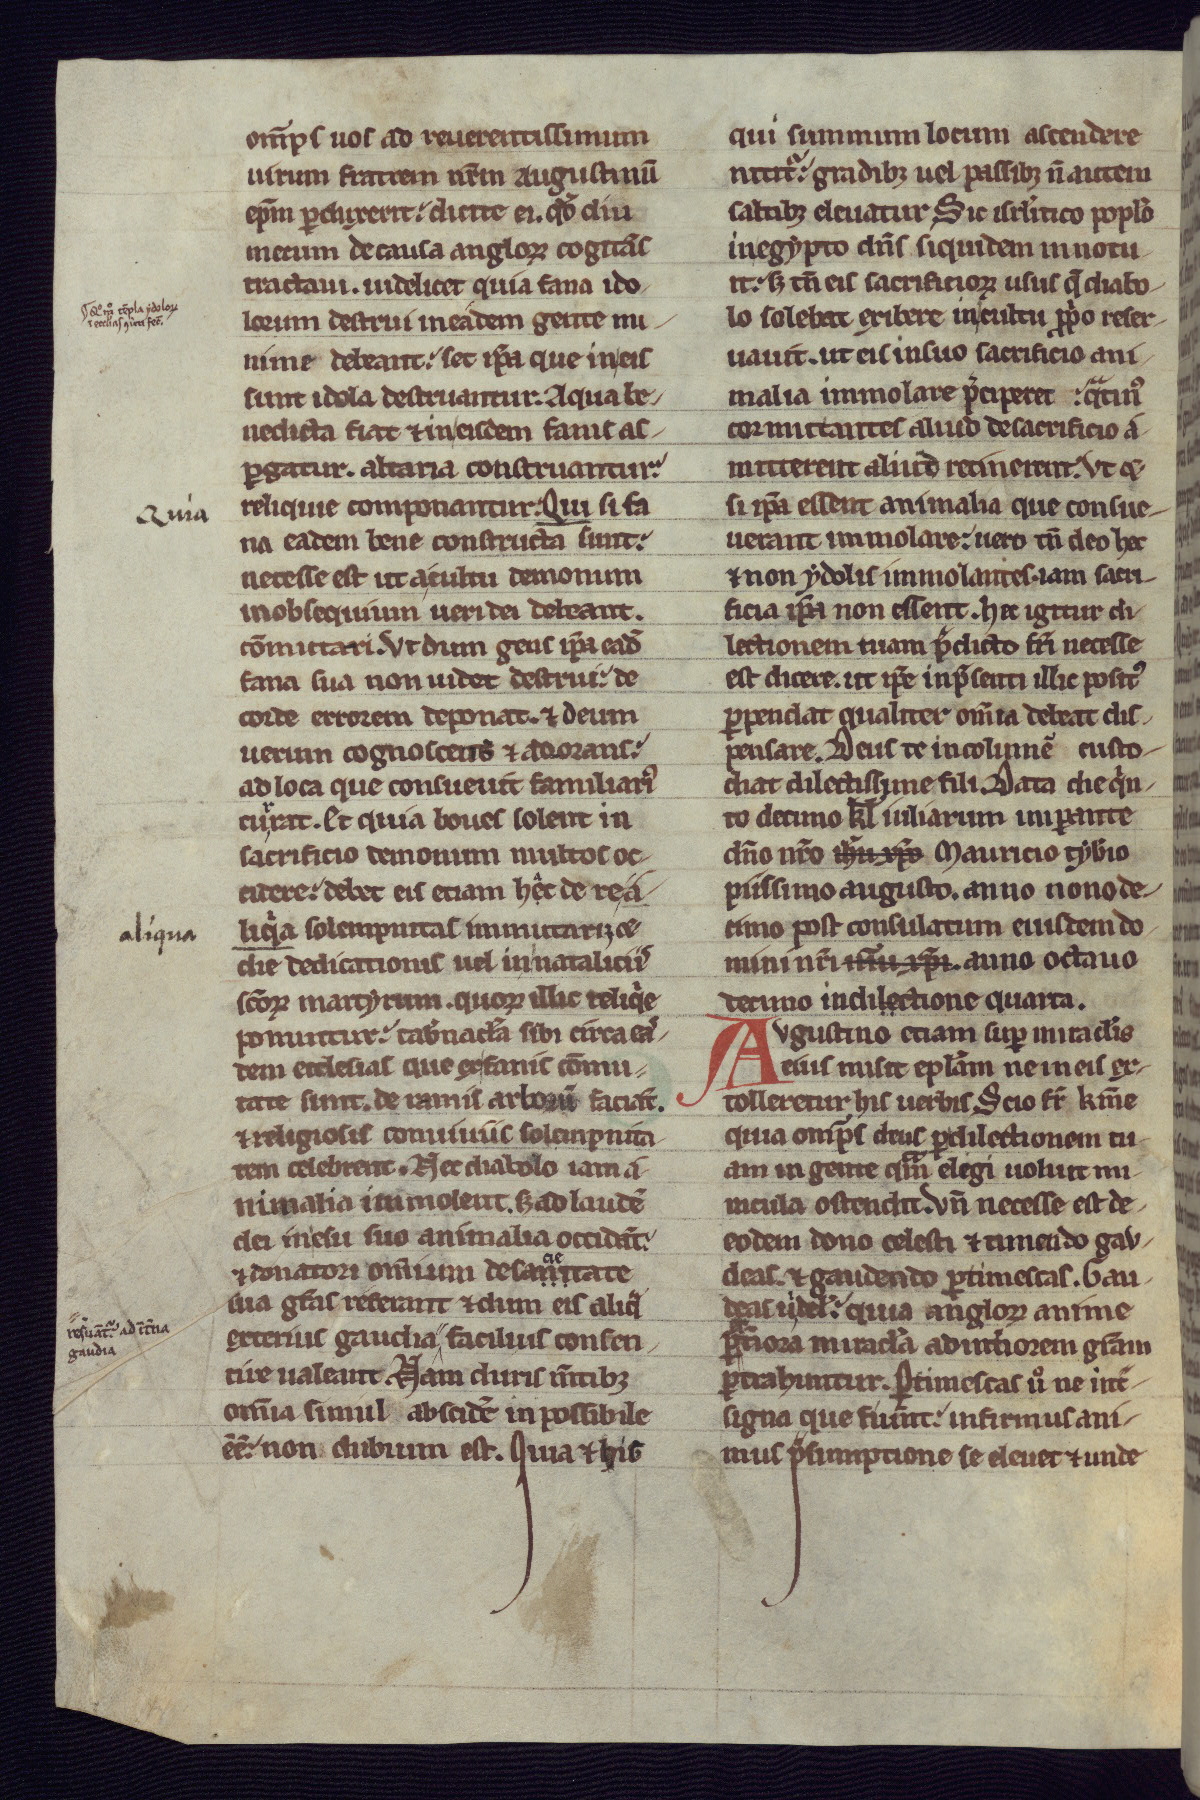 om̅ps uos ad reuerentissimum
uirum fratrem nr̅m Augustinu̅
ep̅m ꝑduxerit: dicite ei. qd̅ diu
mecum de causa angloꝝ cogita̅s
tractaui. uidelicet quia fana ido-
lorum destrui in eadem gente mi-
nime debeant: set ip̅a que in eis
sunt idola destruantur. Aqua be-
nedicta fiat ⁊ in eisdem fanis as-
ꝑgatur. altaria construantur:
reliquie componantur: Qui si fa
na eadem bene constructa sunt:
necesse est ut a cultu demonum
in obsequium ueri dei debeant.
co̅mutari. Vt dum gens ip̅a ead̅
fana sua non uidet destrui: de
corde errorem deponat. ⁊ deum
uerum cognoscens ⁊ adorans:
ad loca que consueuit familiari᾿
currat. Et quia boues solent in
sacrificio demonum multos oc-
cidere: debet eis etiam hec de re a-
liq̅a solempnitas inmutari ꝫ ce
die dedicationis uel in natalicii᾿s
sc̅oꝝ martyrum. quoꝝ illic reliq̅e
ponuntur: tab̅nacl̅a sibi circa ea᾿s
dem ecclesias que ex fanis co̅mu-
tate sunt. de ramis arboru̅ facia̅t.
⁊ religiosis conuiuiis solempnita-
tem celebrent. Nec diabolo iam a-
nimalia immolent. sꝫ ad laude̅
dei in esu suo animalia occida̅t:
⁊ donatori om̅ium de sacietate
sua gr̅as referant ⁊ dum eis aliq̅
exterius gaudia, facilius consen-
tire ualeant Nam duris m̅tibꝫ
om̅ia simul abscide̅ inpossibile
e̅e̅: non dubium est. Quia ⁊ his
ꝫ eccl̅ias
Quia
aliqua
res̅uant᷑: ad i̅t̅na
gaudia
qui summum locum ascendere
nitit᷑: gradibꝫ uel passibꝫ n̅ autem
saltibꝫ eleuatur Sic isrl̅itico popl̅o
in egypto dn̅s siquidem innotu-
it: sꝫ tn̅ eis sacrificioꝝ usus q̅ diabo-
lo solebat exibere in cultu ꝓp̅o reser-
uauit. ut eis in suo sacrificio ani-
malia immolare p̅ciperet: q̅tin᾿
cor mutantes aliud de sacrificio a-
mitterent aliud retinerent: Vt &
si ip̅a essent animalia que consue-
uerant immolare: uero tn̅ deo hec
⁊ non ydolis immolantes. iam sacri-
ficia ip̅a non essent. hec igitur di-
lectionem tuam p̅dicto fr̅i necesse
est dicere. ut ip̅e in p̅senti illic posit᾿
ꝑpendat qualiter om̅ia debeat dis-
pensare. Deus te incolume̅ custo-
diat dilectissime fili. Data die q̅n-
to decimo kl̅ iuliarum imꝑante
dn̅o nr̅o ih̅u xp̅o Mauricio tyb̅io
piissimo augusto. anno nono de-
cimo post consulatum eiusdem do-
mini nr̅i ih̅u xp̅i. anno octauo
decimo indilectione quarta.
AVgustino etiam suꝑ miracl̅is
eius misit epl̅am ne in eis ex-
tolleretur his uerbis. Scio fr̅ kr̅me
quia om̅ps deus ꝑ dilectionem tu-
am in gente qm̅ elegi uoluit mi-
racula ostendit. Vn̅ necesse est de-
eodem dono celesti ⁊ timendo gau-
deas. ⁊ gaudendo ꝑtimescas. Gau-
deas uidel᾿: quia angloꝝ anime
miracl̅a ad int̅iorem gr̅am
ꝑtrahuntur. Ꝑtimescas u᷎ ne int̅-
signa que fiunt: infirmus ani-
mus p̅sumptione se eleuet ⁊ unde